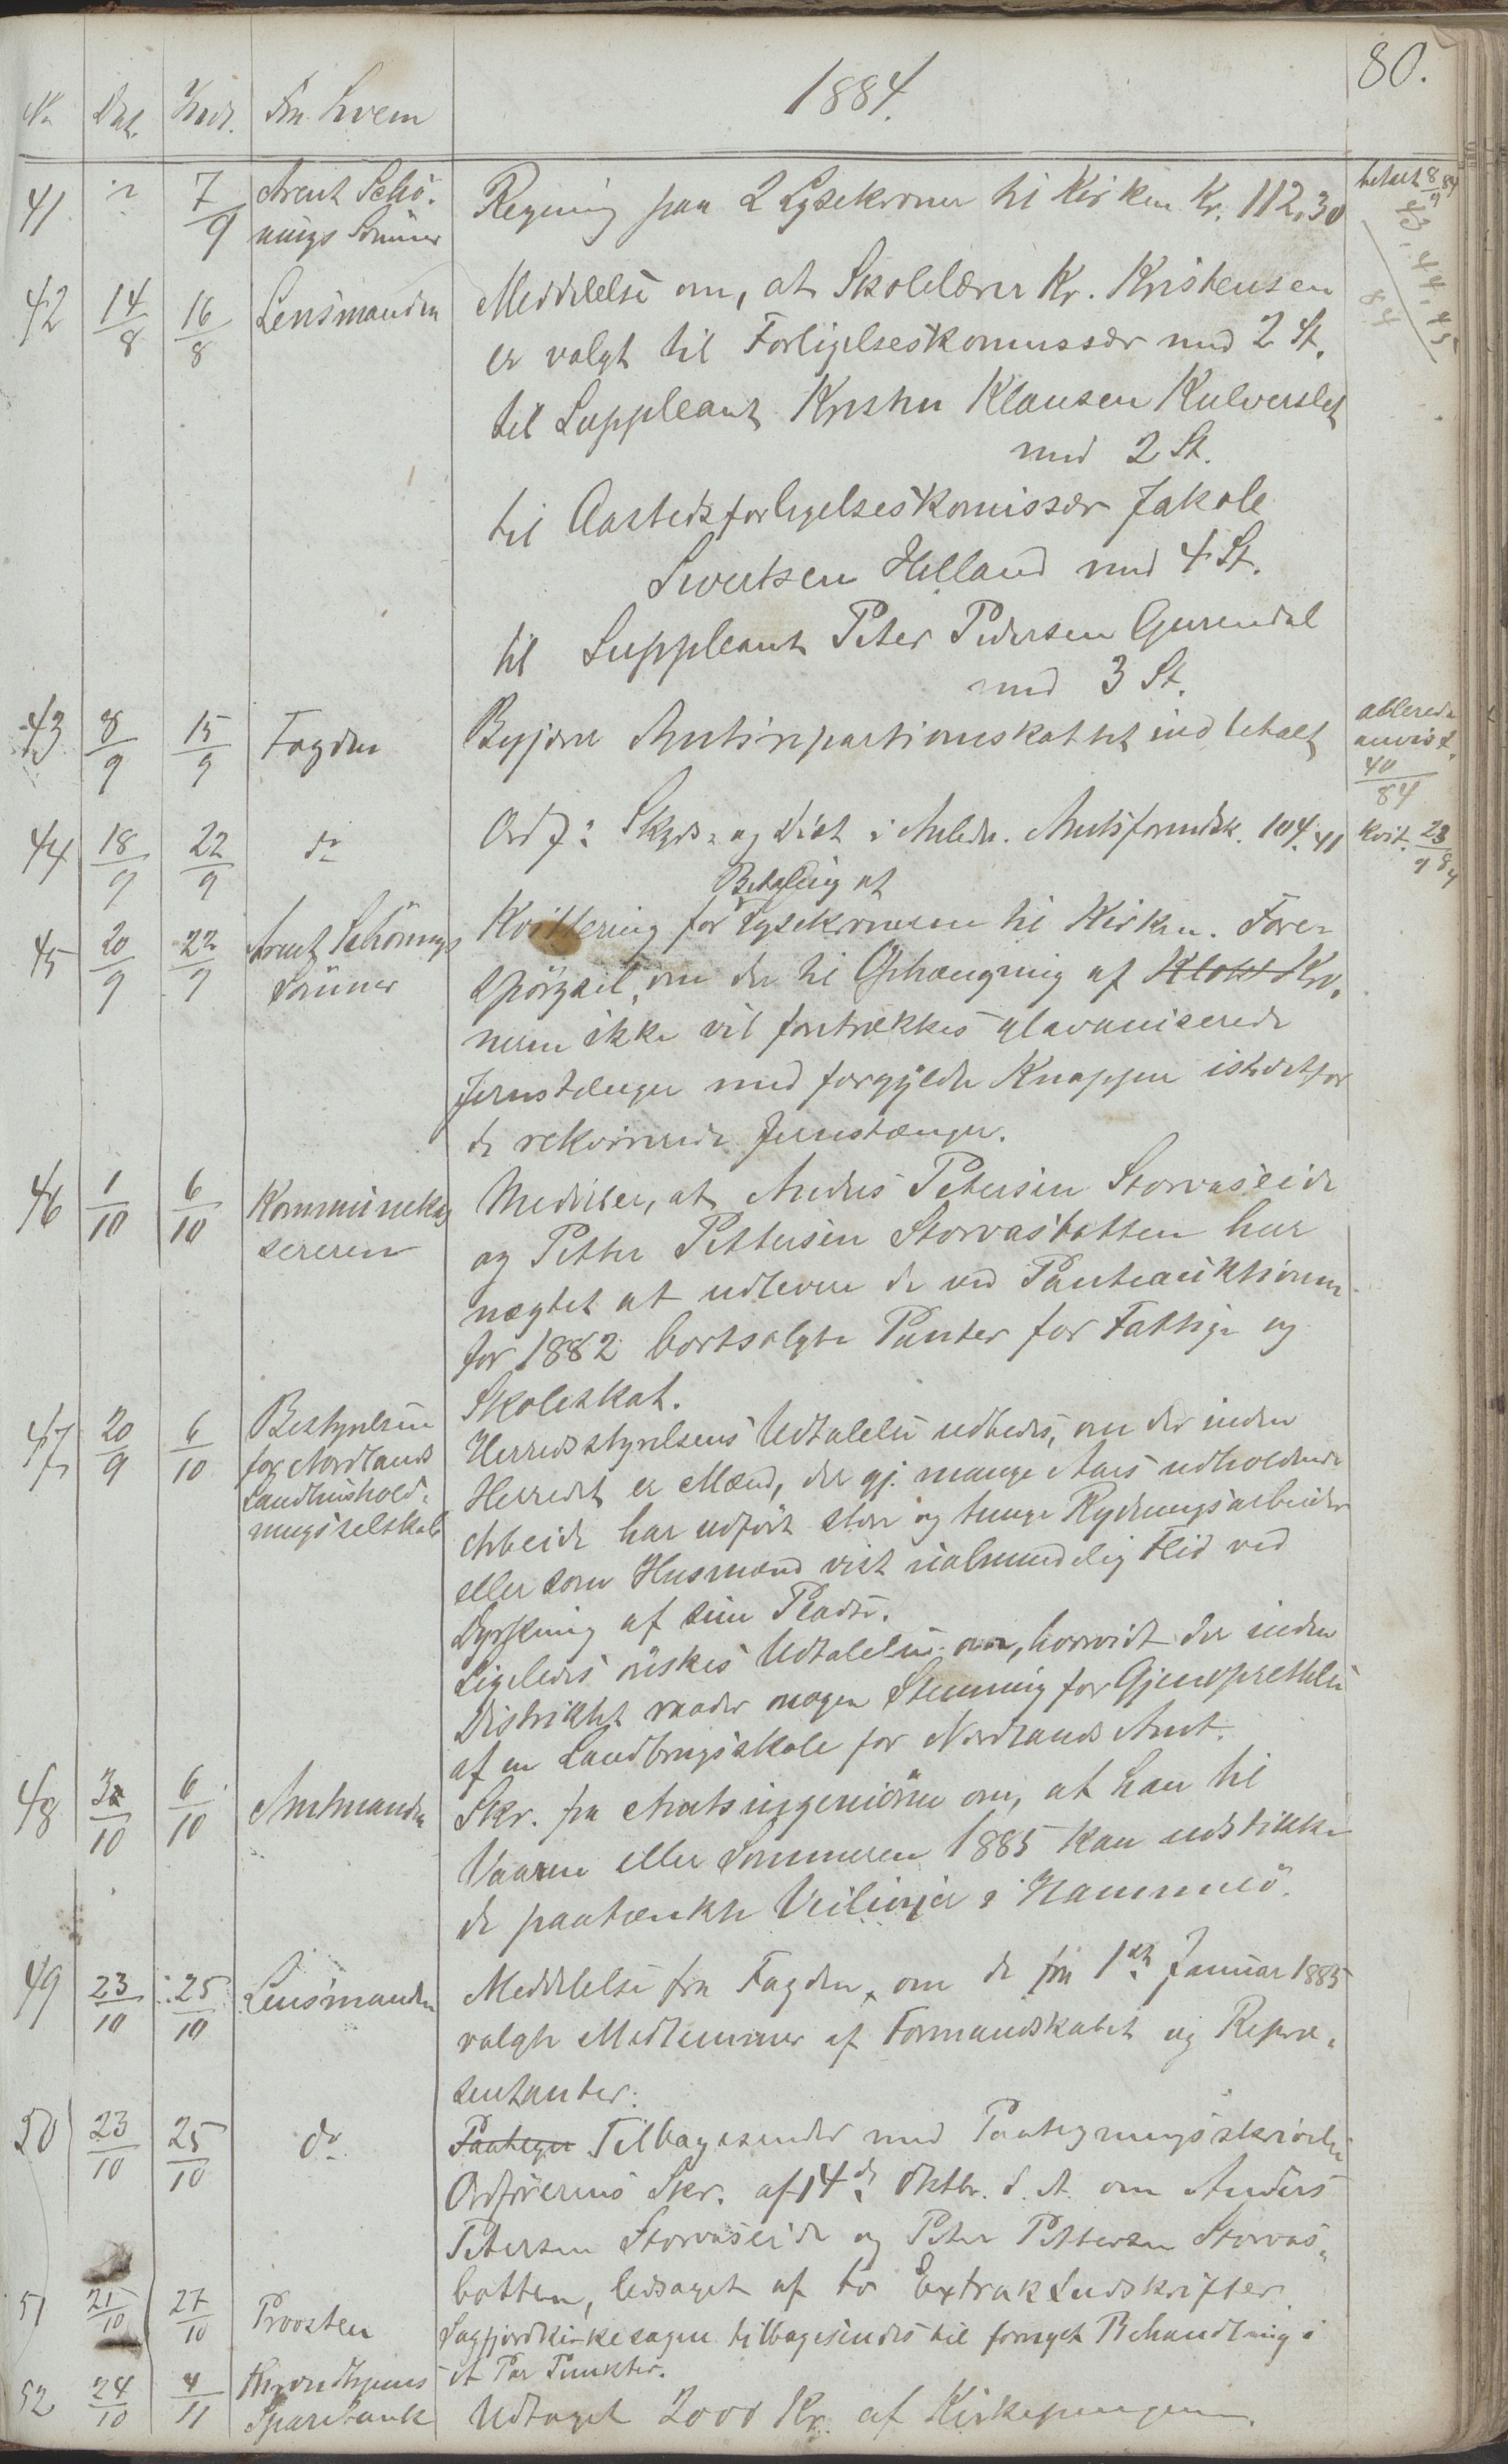 80.
1884.
No Dat. Indk. Fra hvem
41 ? 7/9 Arent Schö-
nings Sönner
Regning paa 2 Lysekroner til Kirken Kr. 112,30
betalt 8/9 84
43, 44, 45
84
42 14/8 16/8 Lensmanden
Meddelelse om, at Skolelærer Kr. Kristensen
er valgt til Forligelseskommissær med 2 St.
til Suppleant Krister Klausen Kulverslet
med 2 St.
til Aastedsforligelseskomissær Jakole
Sivertsen Helland med 4 St.
til Suppleant Peter Pedersen Gurendal
med 3 St.
43 8/9 15/9 Fogden
Begjærer Amtsrepartionskattet indbetalt
allerede
anvist.
40/84
44 18/9 22/9 do
Ordf: Skyds- og Diæt i Anledn. Amtsformdsk. 104,41
kvit. 23/9 84
45 20/9 22/9 Arent Schönings
Sönner
Betaling af
Kvittering for Lysekronerne til Kirken. Fore-
spörgsel, om der til Ophængning af Klokk Kro-
nerne ikke vil foretrækkes glavaniserede
Jernstænger med forgyldte Knapper istedetfor
de rekvirerede Jernstænger.
46 1/10 6/10 Kommunekas
sereren
Meddeler, at Anders Petersen Storvaseide
og Petter Pettersen Storvasbotten har
nægtet at udlevere de ved Panteauktionen
for 1882 bortsolgte Panter for Fattig- og
Skoleskat.
47 20/9 6/10 Bestyrelsen
for Nordlands
Landhushold-
ningsselskab
Herredsstyrelsens Udtalelse udbedes, om der inden
Herredet er Mænd, der gj. mange Aars udholdende
Arbeide har udført store og tunge Rydningsarbeider
eller som Husmænd vist ualmindelig Flid ved
Dyrkning af sin Plads.
Ligeledes önskes Udtalelse om, hvorvidt der inden
Distriktet raader nogen Stemning for Gjenoprettelse
af en Landbrugsskole for Nordlands Amt.
48 3/10 6/10 Amtmanden
Skr. fra Amtsingeniören om, at han til
Vaaren eller Sommeren 1885 kan udstikke
de paatænkte Veilinjer i Hammerö.
49 23/10 25/10 Lensmanden
Meddelelse fra Fogden, om de fra 1ste Januar 1885
valgte Medlemmer af Formandskabet og Repræ-
sentanter.
50 23/10 25/10 do
Paategn Tilbagesender med Paategningsskrivelse
Ordförerens Skr. af 14de Oktbr. d. A. om Anders
Petersen Storvaseide og Peter Pettersen Storvas-
botten, ledsaget af to Extraktudskrifter.
51 25/10 27/10 Provsten
Sagfjordkirkesagen tilbagesendes til fornyet Behandling i
et Par Punkter.
52 24/10 4/11 Throndhjems
Sparebank
Udtaget 2000 Kr. af Kirkepengene.